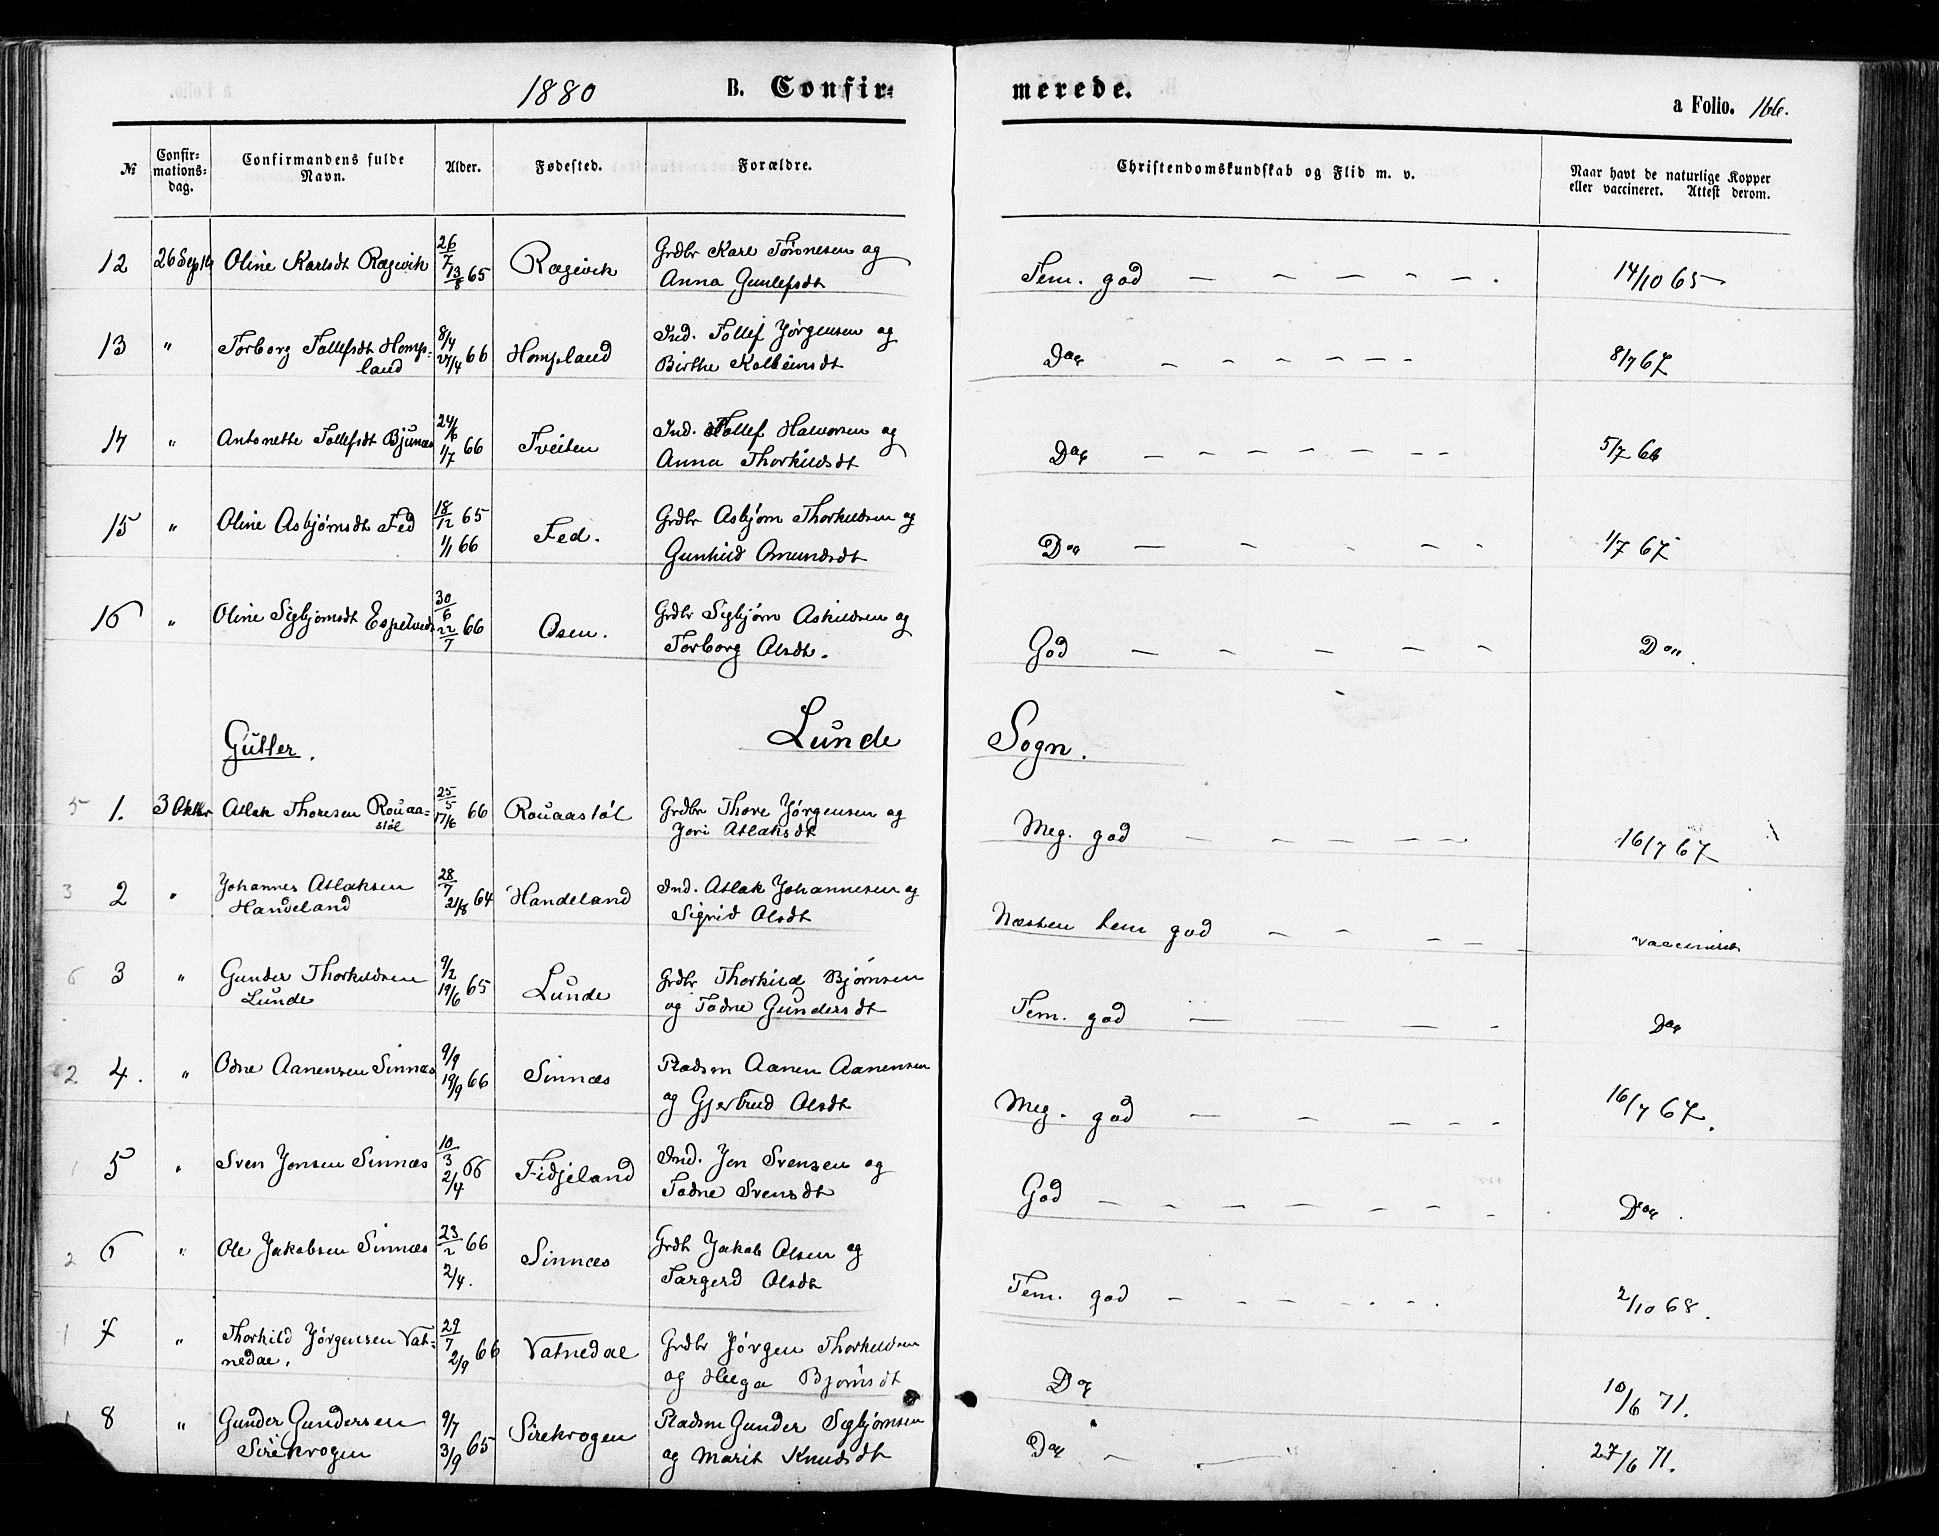 1880 B. Confir- merede. a Folio. 166.
№ Confir-mations-dag. Confirmandens fulde Navn. Alder. Fødested. Forældre. Christendomskundskab og Flid m. v. Naar havt de naturlige Kopper eller vaccineret. Attest derom.
12 26 Septb Oline Karlsdt Ræsevik 26/7 13/8 65 Ræsevik Grdbr Karl Tønnesen og
Anna Gunlefsdt Tem. god — — — — — . 14/10 65
13 " Torborg Tollefsdt Homps- 8/4 27/4 66 Hompland Ind. Tollef Jørgensen og
land Birthe Kolbeinsdt Do — — — — — — 8/7 67
14 " Antonette Tollefsdt Bjunes 24/6 1/7 66 Tveiten Ind. Tollef Halvorsen og
Anna Thorkildsdt Do — — — — — — — 5/7 66
15 " Oline Asbjørnsdt Fed 18/12 65 Fed. Grdbr Asbjørn Thorkildsen og
1/1 66 Gunhild Omundsdt Do — — - — - 1/7 67
16 " Oline Sigbjørnsdt Espetvedt 30/6 22/7 66 Osen. Grdbr Sigbjørn Askildsen og
Torborg Olsdt. God — — — — — Do
Gutter. Lunde Sogn.
5 1. 3 Oktbr Atlak Thoresen Rouaa- 25/5 17/6 66 Rouaastøl Grdbr Thore Jørgensen og
støl Jori Atlaksdt Meg. god — — — — — 16/7 67
3 2 " Johannes Atlaksen 28/7 21/8 64 Handeland Ind. Atlak Johannesen og
Handeland Sigrid Olsdt Næsten tem god — — — — — vaccineret
6 3 " Gunder Thorkildsen 9/2 19/6 65 Lunde Grdbr Thorkild Bjørnsen
Lunde og Todne Gundersdt Tem. god — — — — - Do
2 4. " Odne Aanensen Sinnæs 9/9 19/9 66 Sinnæs Pladsm Aanen Aanensen
og Gjertrud Olsdt Meg. god — — — — — 16/7 67.
1 5 " Sven Jonsen Sinnæs 10/3 2/4 66 Fidjeland Ind. Jon Svensen og
Todne Svensdt God — — — — — — - Do .
2 6 " Ole Jakobsen Sinnæs 23/2 66 Sinnæs Grdb Jakob Olsen og
2/4. Targerd Olsdt Tem. god — - — - - - 2/10 68.
1 7 " Thorkild Jørgensen Vat- 29/7 2/9 66 Vatnedal Grdbr Jørgen Thorkildsen
nedal. og Helga Bjørnsdt Do 10/6 71.
1 8 " Gunder Gundersen 9/7 3/9 65 Sirekrogen Pladsm Gunder Sigbjørnsen
Sirekrogen og Marit Knudsdt Do — - 27/6 71.